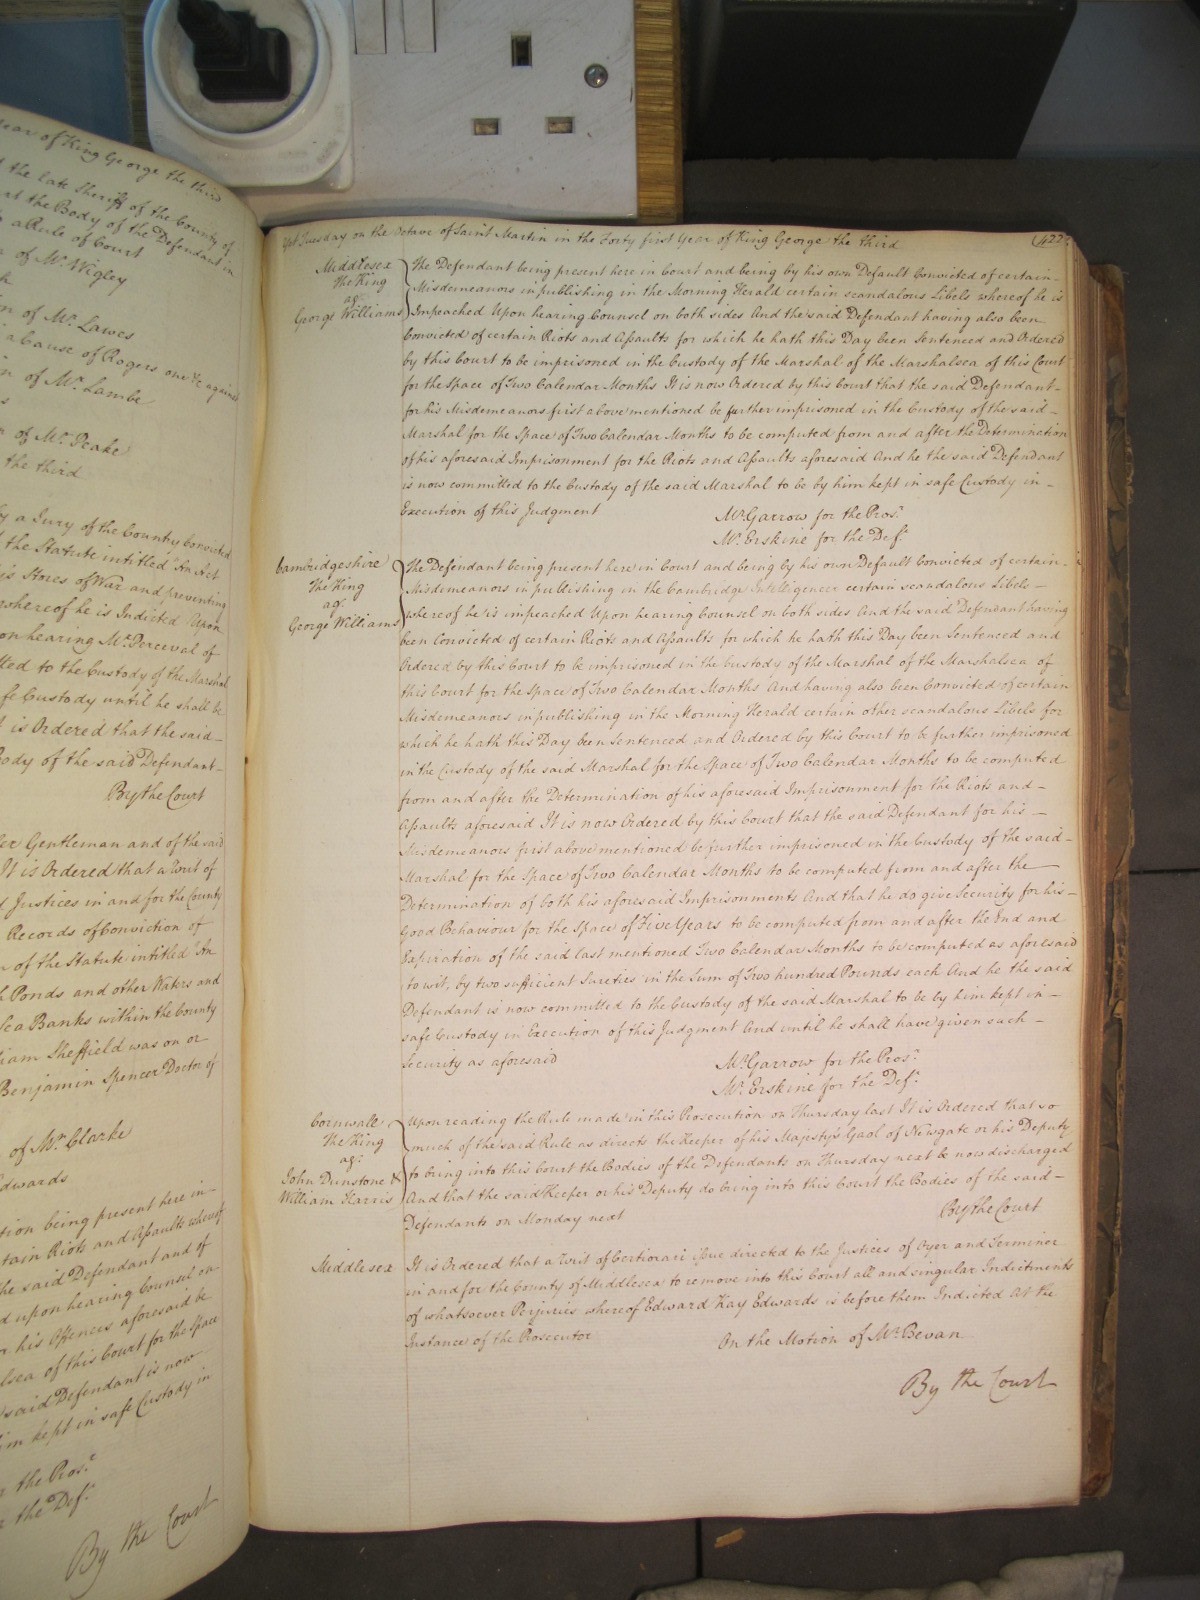 year of King George the third
the late Sheriff of the County of
the Body of the Defendant in
a Rule of Court
of Mr. Wigley
of Mr. Lawes
a Cause of Rogers one &c against
of Mr. Lambe
of Mr. Peake
the third
by a Jury of the Country Convicted
the Statute intitled An Act
Stores of War and preventing
whereof he is Indicted Upon
on hearing Mr. Perceval of
to the Custody of the Marshal
Custody until he shall be
is Ordered that the said
Body of the said Defendant
By the Court
Gentleman and of the said
It is Ordered that a Writ of
Justices in and for the County
Records of Conviction of
of the Statute intitled An
Ponds and other Waters and
Sea Banks within the County
William Sheffield was on or
Benjamin Spencer Doctor of
of Mr. Clarke
Edwards
being present here in
certain Riots and Assaults whereof
the said Defendant and of
upon hearing Counsel on
his Offences aforesaid be
of this Court for the Space
said Defendant is now
kept in safe Custody in
the Pros.r
the Def.t
By the Court
Yet Tuesday on the Octave of Saint Martin in the Forty first Year of King George the third
422
Middlesex
The King
ag.t
George Williams
The Defendant being present here in Court and being by his own Default Convicted of certain
Misdemeanors in publishing in the Morning Herald certain scandalous Libels whereof he is
Impeached Upon hearing Counsel on both sides And the said Defendant having also been
Convicted of certain Riots and Assaults for which he hath this Day been Sentenced and Ordered
by this Court to be imprisoned in the Custody of the Marshal of the Marshalsea of this Court
for the Space of Two Calendar Months It is now Ordered by this Court that the said Defendant
for his Misdemeanors first above mentioned be further imprisoned in the Custody of the said
Marshal for the Space of Two Calendar Months to be computed from and after the Determination
of his aforesaid Imprisonment for the Riots and Assaults aforesaid And he the said Defendant
is now committed to the Custody of the said Marshal to be by him kept in safe Custody in
Execution of this Judgment
Mr. Garrow for the Pros.r
Mr. Erskine for the Def.t
Cambridgeshire
The King
ag.t
George Williams
The Defendant being present here in Court and being by his own Default Convicted of certain
Misdemeanors in publishing in the Cambridge Intelligencer certain scandalous Libels
whereof he is impeached Upon hearing Counsel on both sides And the said Defendant having
been Convicted of certain Riots and Assaults for which he hath this Day been Sentenced and
Ordered by this Court to be imprisoned in the Custody of the Marshal of the Marshalsea of
this Court for the Space of Two Calendar Months And having also been Convicted of certain
Misdemeanors in publishing in the Morning Herald certain other scandalous Libels for
which he hath this Day been Sentenced and Ordered by this Court to be further imprisoned
in the Custody of the said Marshal for the Space of Two Calendar Months to be computed
from and after the Determination of his aforesaid Imprisonment for the Riots and
Assaults aforesaid It is now Ordered by this Court that the said Defendant for his
Misdemeanors first above mentioned be further imprisoned in the Custody of the said
Marshal for the Space of Two Calendar Months to be computed from and after the
Determination of both his aforesaid Imprisonments And that he do give Security for his
good Behaviour for the Space of Five Years to be computed from and after the End and
Expiration of the said last mentioned Two Calendar Months to be computed as aforesaid
to wit, by two sufficient Sureties in the Sum of Two hundred Pounds each And he the said
Defendant is now committed to the Custody of the said Marshal to be by him kept in
safe Custody in Execution of this Judgment And until he shall have given such
Security as aforesaid
Mr. Garrow for the Pros.r
Mr. Erskine for the Def.t
Cornwall
The King
ag.t
John Dunstone &
William Harris
Upon reading the Rule made in this Prosecution on Thursday last It is Ordered that so
much of the said Rule as directs the Keeper of his Majesty's Gaol of Newgate or his Deputy
to bring into this Court the Bodies of the Defendants on Thursday next be now discharged
And that the said Keeper or his Deputy do bring into this Court the Bodies of the said
Defendants on Monday next
By the Court
Middlesex
It is Ordered that a Writ of Certiorari issue directed to the Justices of Oyer and Terminer
in and for the County of Middlesex to remove into this Court all and singular Indictments
of whatsoever Perjuries whereof Edward Kay Edwards is before them Indicted At the
Instance of the Prosecutor
On the Motion of Mr. Bevan
By the Court